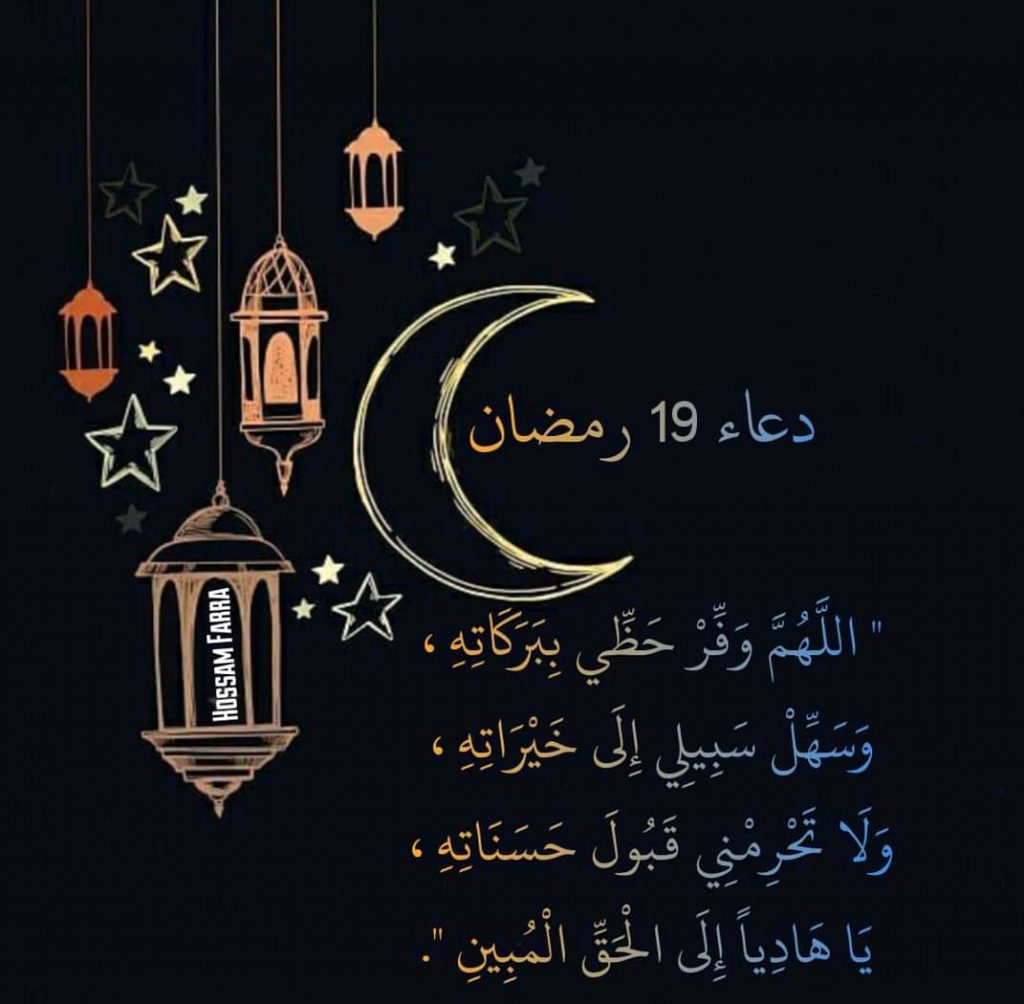 دعاء 19 رمضان
" اللَّهُمَّ وَفِّرْ حَظِّي بِبَرَكَاتِهِ ،
وَسَهِّلْ سَبِيلِي إِلَى خَيْرَاتِهِ ،
وَلَا تَحْرِمْنِي قَبُولَ حَسَنَاتِهِ ،
يَا هَادِياً إِلَى الْحَقِّ الْمُبِينِ ".
HOSSAM FARRA